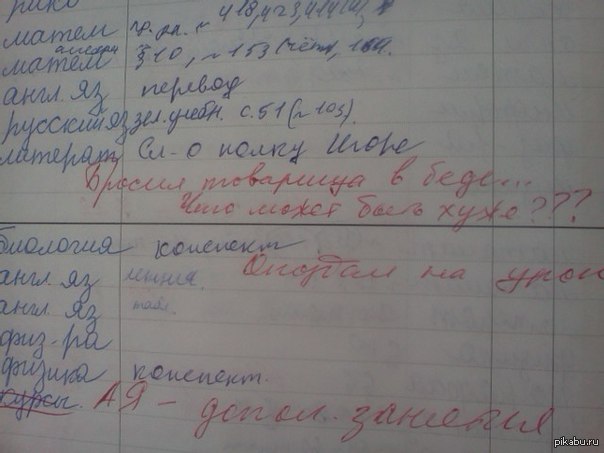 матем гр. ра. ~ 418, 423, 414(а),
матем алгебра §10, ~ 153 (чётн,
англ. яз перевод
русский яз зел. учебн. с. 51 (~ 103).
литерат Сл-о полку Игоре
Бросил товарища в беде...
Что может быть хуже???
биология конспект
англ. яз лекция. Опоздал на урок
англ. яз табл.
физ-ра
физика конспект.
курсы. АЯ - допол. занятия
pikabu.ru